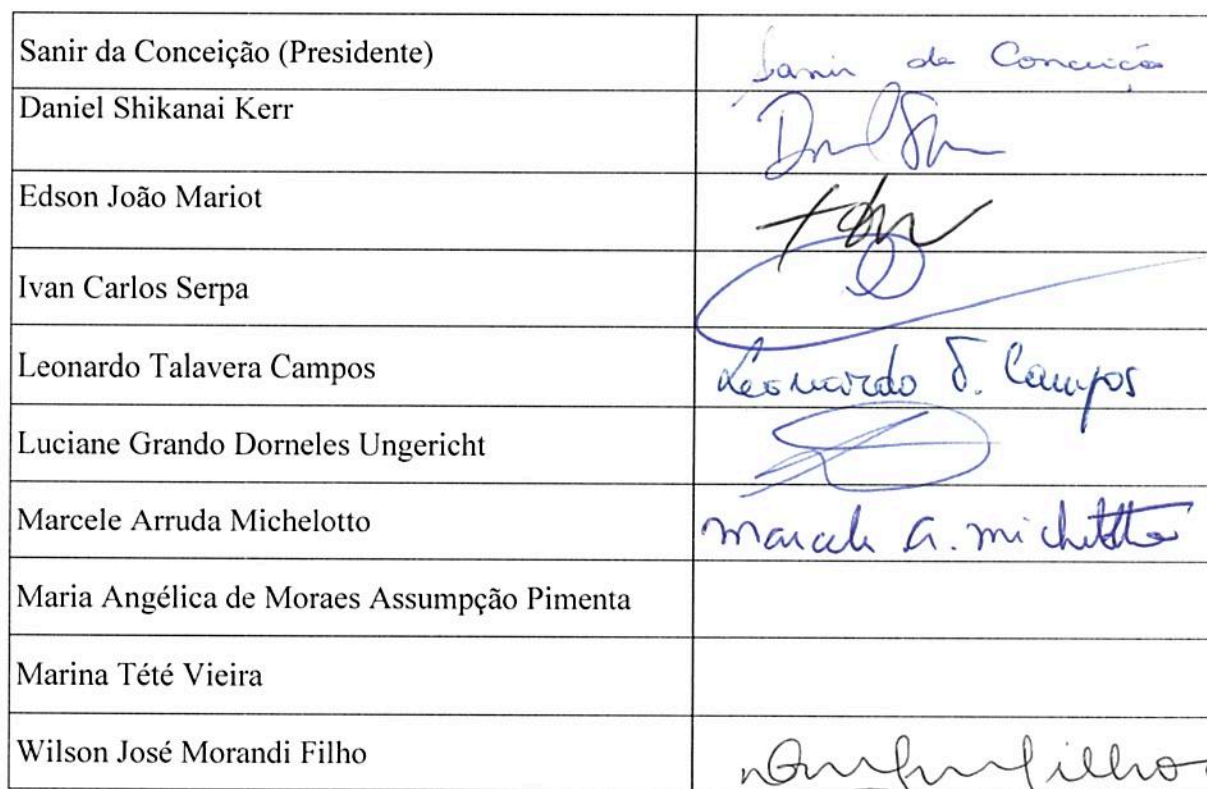 Sanir da Conceição (Presidente) Sanir da Conceição
Daniel Shikanai Kerr
Edson João Mariot
Ivan Carlos Serpa
Leonardo Talavera Campos Leonardo T. Campos
Luciane Grando Dorneles Ungericht
Marcele Arruda Michelotto Marcele A. Michelotto
Maria Angélica de Moraes Assumpção Pimenta
Marina Tété Vieira
Wilson José Morandi Filho filho